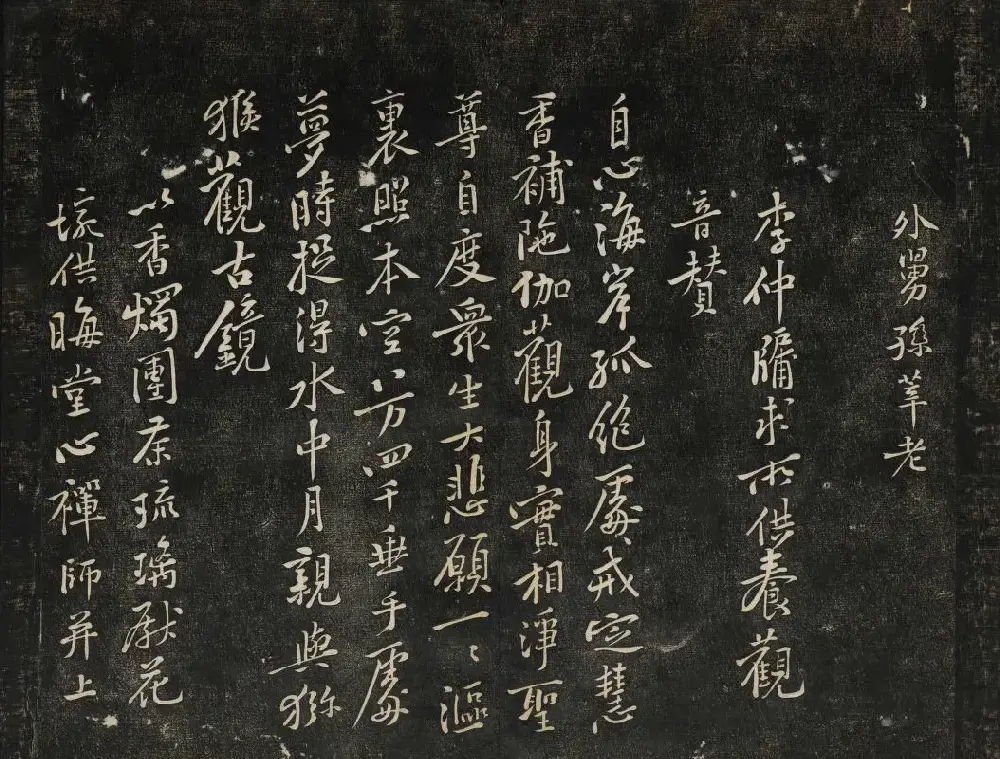 外舅孫莘老
李仲牖求所供養觀
音賛
自心海岸孤絶處戒定慧
香補陁伽觀身實相淨聖
尊自度衆生大悲願一〻漚
裏照本空八万四千垂手處
夢時捉得水中月親與獼
猴觀古鏡
以香燭團茶琉璃獻花
垸供晦堂心禪師并上